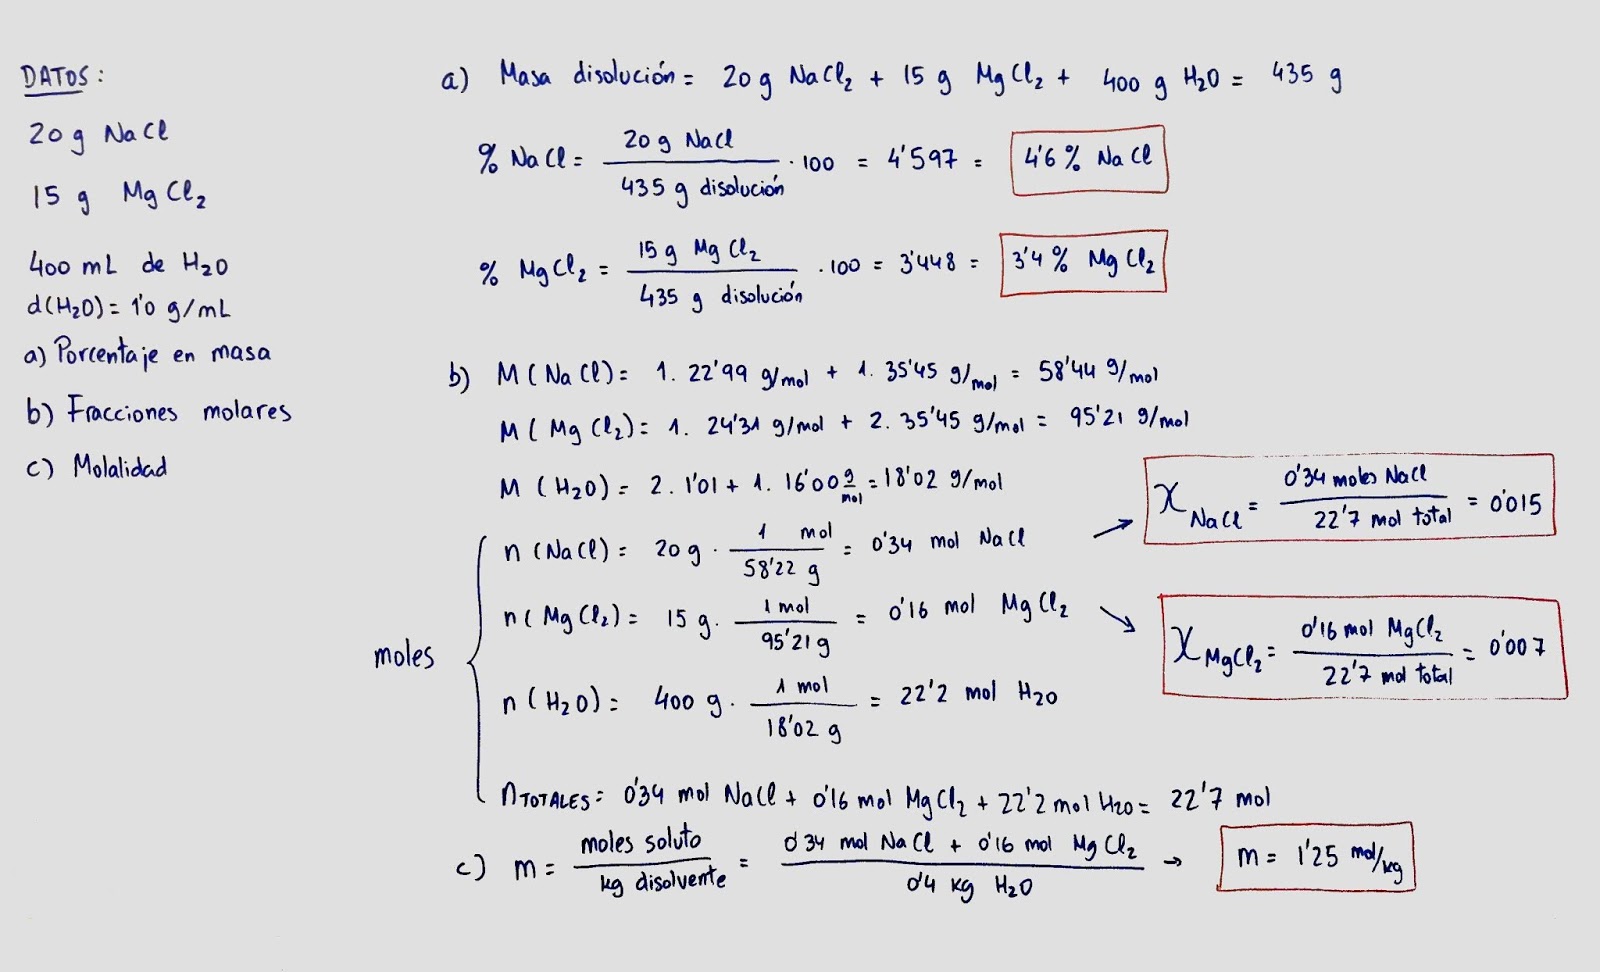 DATOS:
20 g NaCl
15 g MgCl₂
400 mL de H₂O
d(H₂O) = 1'0 g/mL
a) Porcentaje en masa
b) Fracciones molares
c) Molalidad
a) Masa disolución = 20 g NaCl₂ + 15 g MgCl₂ + 400 g H₂O = 435 g
% NaCl = 20 g NaCl / 435 g disolución · 100 = 4'597 = 4'6 % NaCl
% MgCl₂ = 15 g MgCl₂ / 435 g disolución · 100 = 3'448 = 3'4 % MgCl₂
b) M(NaCl) = 1. 22'99 g/mol + 1. 35'45 g/mol = 58'44 g/mol
M(MgCl₂) = 1. 24'31 g/mol + 2. 35'45 g/mol = 95'21 g/mol
M(H₂O) = 2. 1'01 + 1. 16'00 g/mol = 18'02 g/mol
moles
n(NaCl) = 20 g · 1 mol / 58'22 g = 0'34 mol NaCl → χ NaCl = 0'34 moles NaCl / 22'7 mol total = 0'015
n(MgCl₂) = 15 g. 1 mol / 95'21 g = 0'16 mol MgCl₂ → χ MgCl₂ = 0'16 mol MgCl₂ / 22'7 mol total = 0'007
n(H₂O) = 400 g. 1 mol / 18'02 g = 22'2 mol H₂O
n TOTALES = 0'34 mol NaCl + 0'16 mol MgCl₂ + 22'2 mol H₂O = 22'7 mol
c) m = moles soluto / kg disolvente = 0'34 mol NaCl + 0'16 mol MgCl₂ / 0'4 kg H₂O → m = 1'25 mol/kg